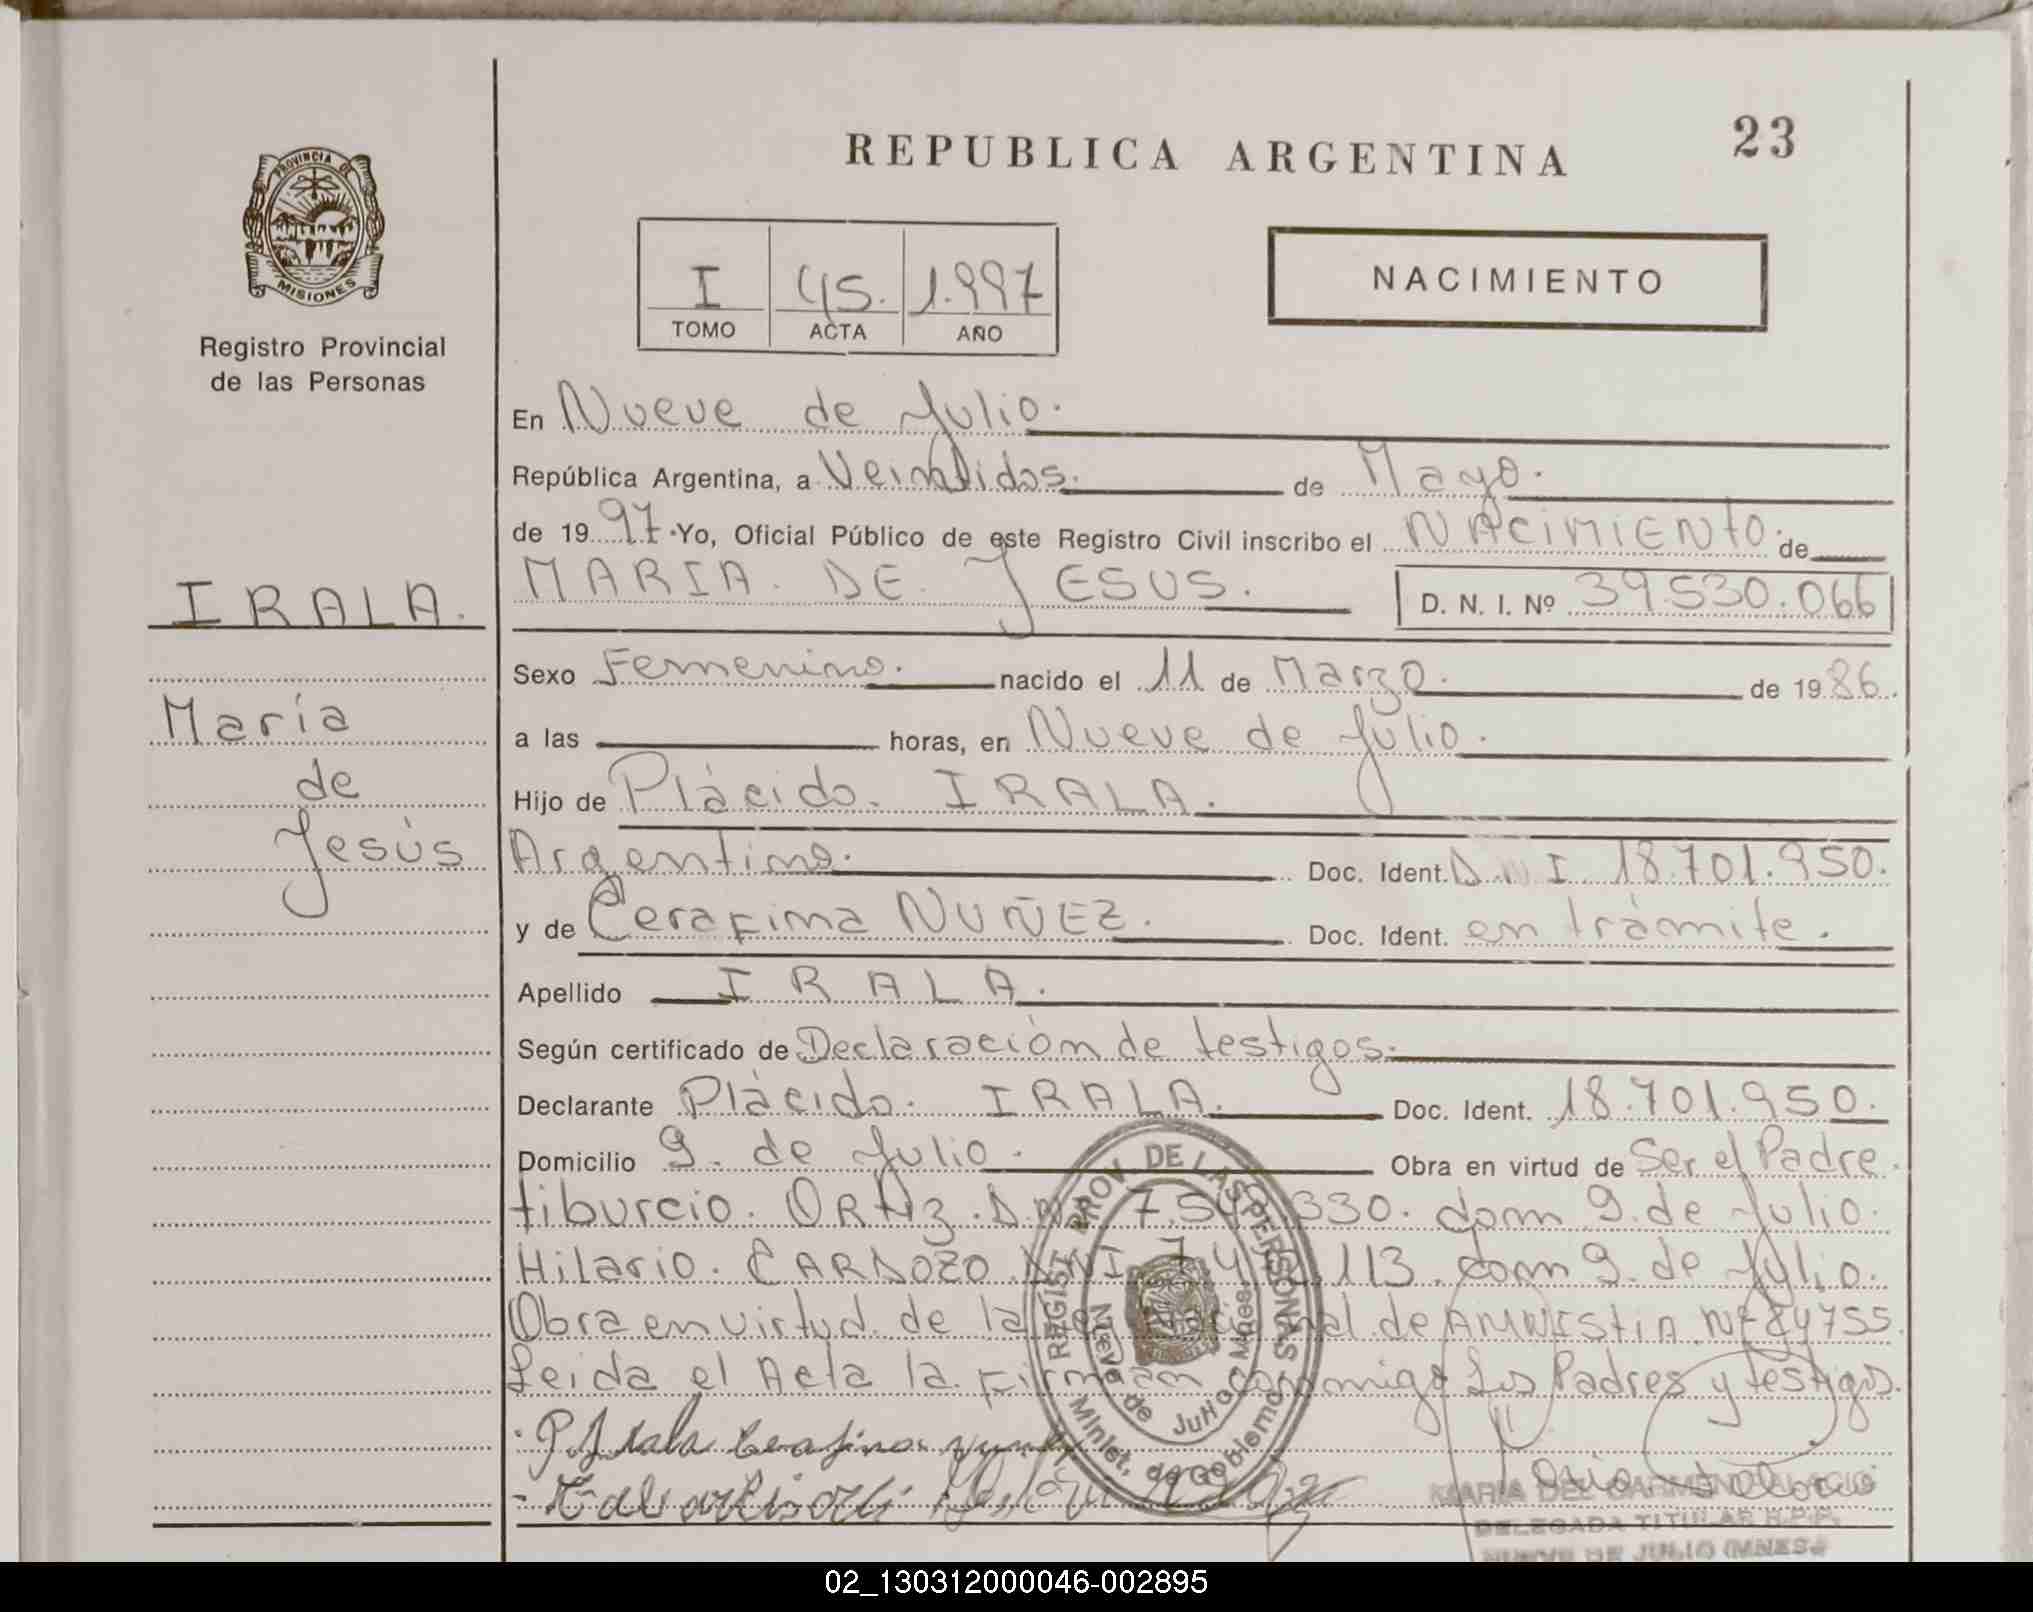 REPUBLICA ARGENTINA
23
PROVINCIA DE
MISIONES
Registro Provincial
de las Personas
I 45. 1.997
TOMO ACTA AÑO
NACIMIENTO
En Nueve de Julio.
República Argentina, a Veintidos. de Mayo.
de 19 97. Yo, Oficial Público de este Registro Civil inscribo el NACIMIENTO de
MARIA. DE. JESUS. D. N. I. Nº 39.530.066
IRALA.
María
de
Jesús
Sexo Femenino. nacido el 11 de Marzo. de 19 86.
a las horas, en Nueve de Julio.
Hijo de Plácido. IRALA.
Argentino. Doc. Ident. D.N.I. 18.701.950.
y de Cerafina NUÑEZ. Doc. Ident. en trámite.
Apellido IRALA.
Según certificado de Declaración de testigos.
Declarante Plácido. IRALA. Doc. Ident. 18.701.950.
Domicilio 9. de Julio. Obra en virtud de Ser el Padre.
tiburcio. ORtiz. D.N. 330. dom 9. de Julio.
Hilario. CARDOZO DNI 113. dom 9. de Julio.
Obra en virtud. de la de AMNIStIA Nº 24755.
Leida el Acta la Firman conmigo Los Padres y testigos.
REGIST. PROV. DE LAS PERSONAS
Nueve de Julio Mnes.
Minist. de Gobierno
MARIA DEL CARMEN
DELEGADA TITULAR R.P.P.
NUEVE DE JULIO (MNES.)
02_130312000046-002895